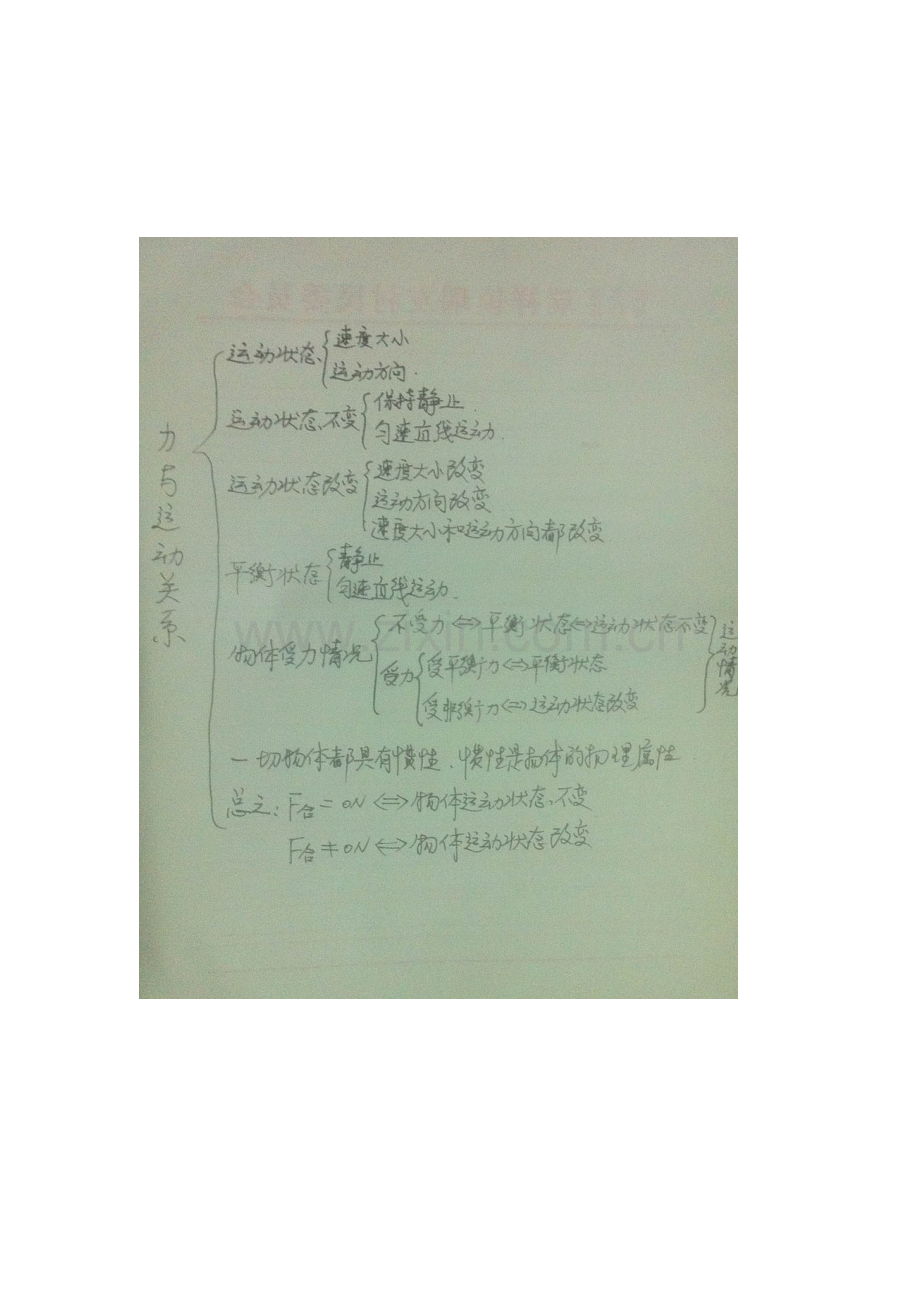 力与运动关系
运动状态{速度大小
运动方向.
运动状态不变{保持静止.
匀速直线运动.
运动状态改变{速度大小改变
运动方向改变
速度大小和运动方向都改变
平衡状态{静止
匀速直线运动.
物体受力情况{不受力⇔平衡状态⇔运动状态不变}运动情况
受力{受平衡力⇔平衡状态
受非衡力⇔运动状态改变
一切物体都具有惯性、惯性是物体的物理属性.
总之:F合=0N⇔物体运动状态不变
F合≠0N⇔物体运动状态改变